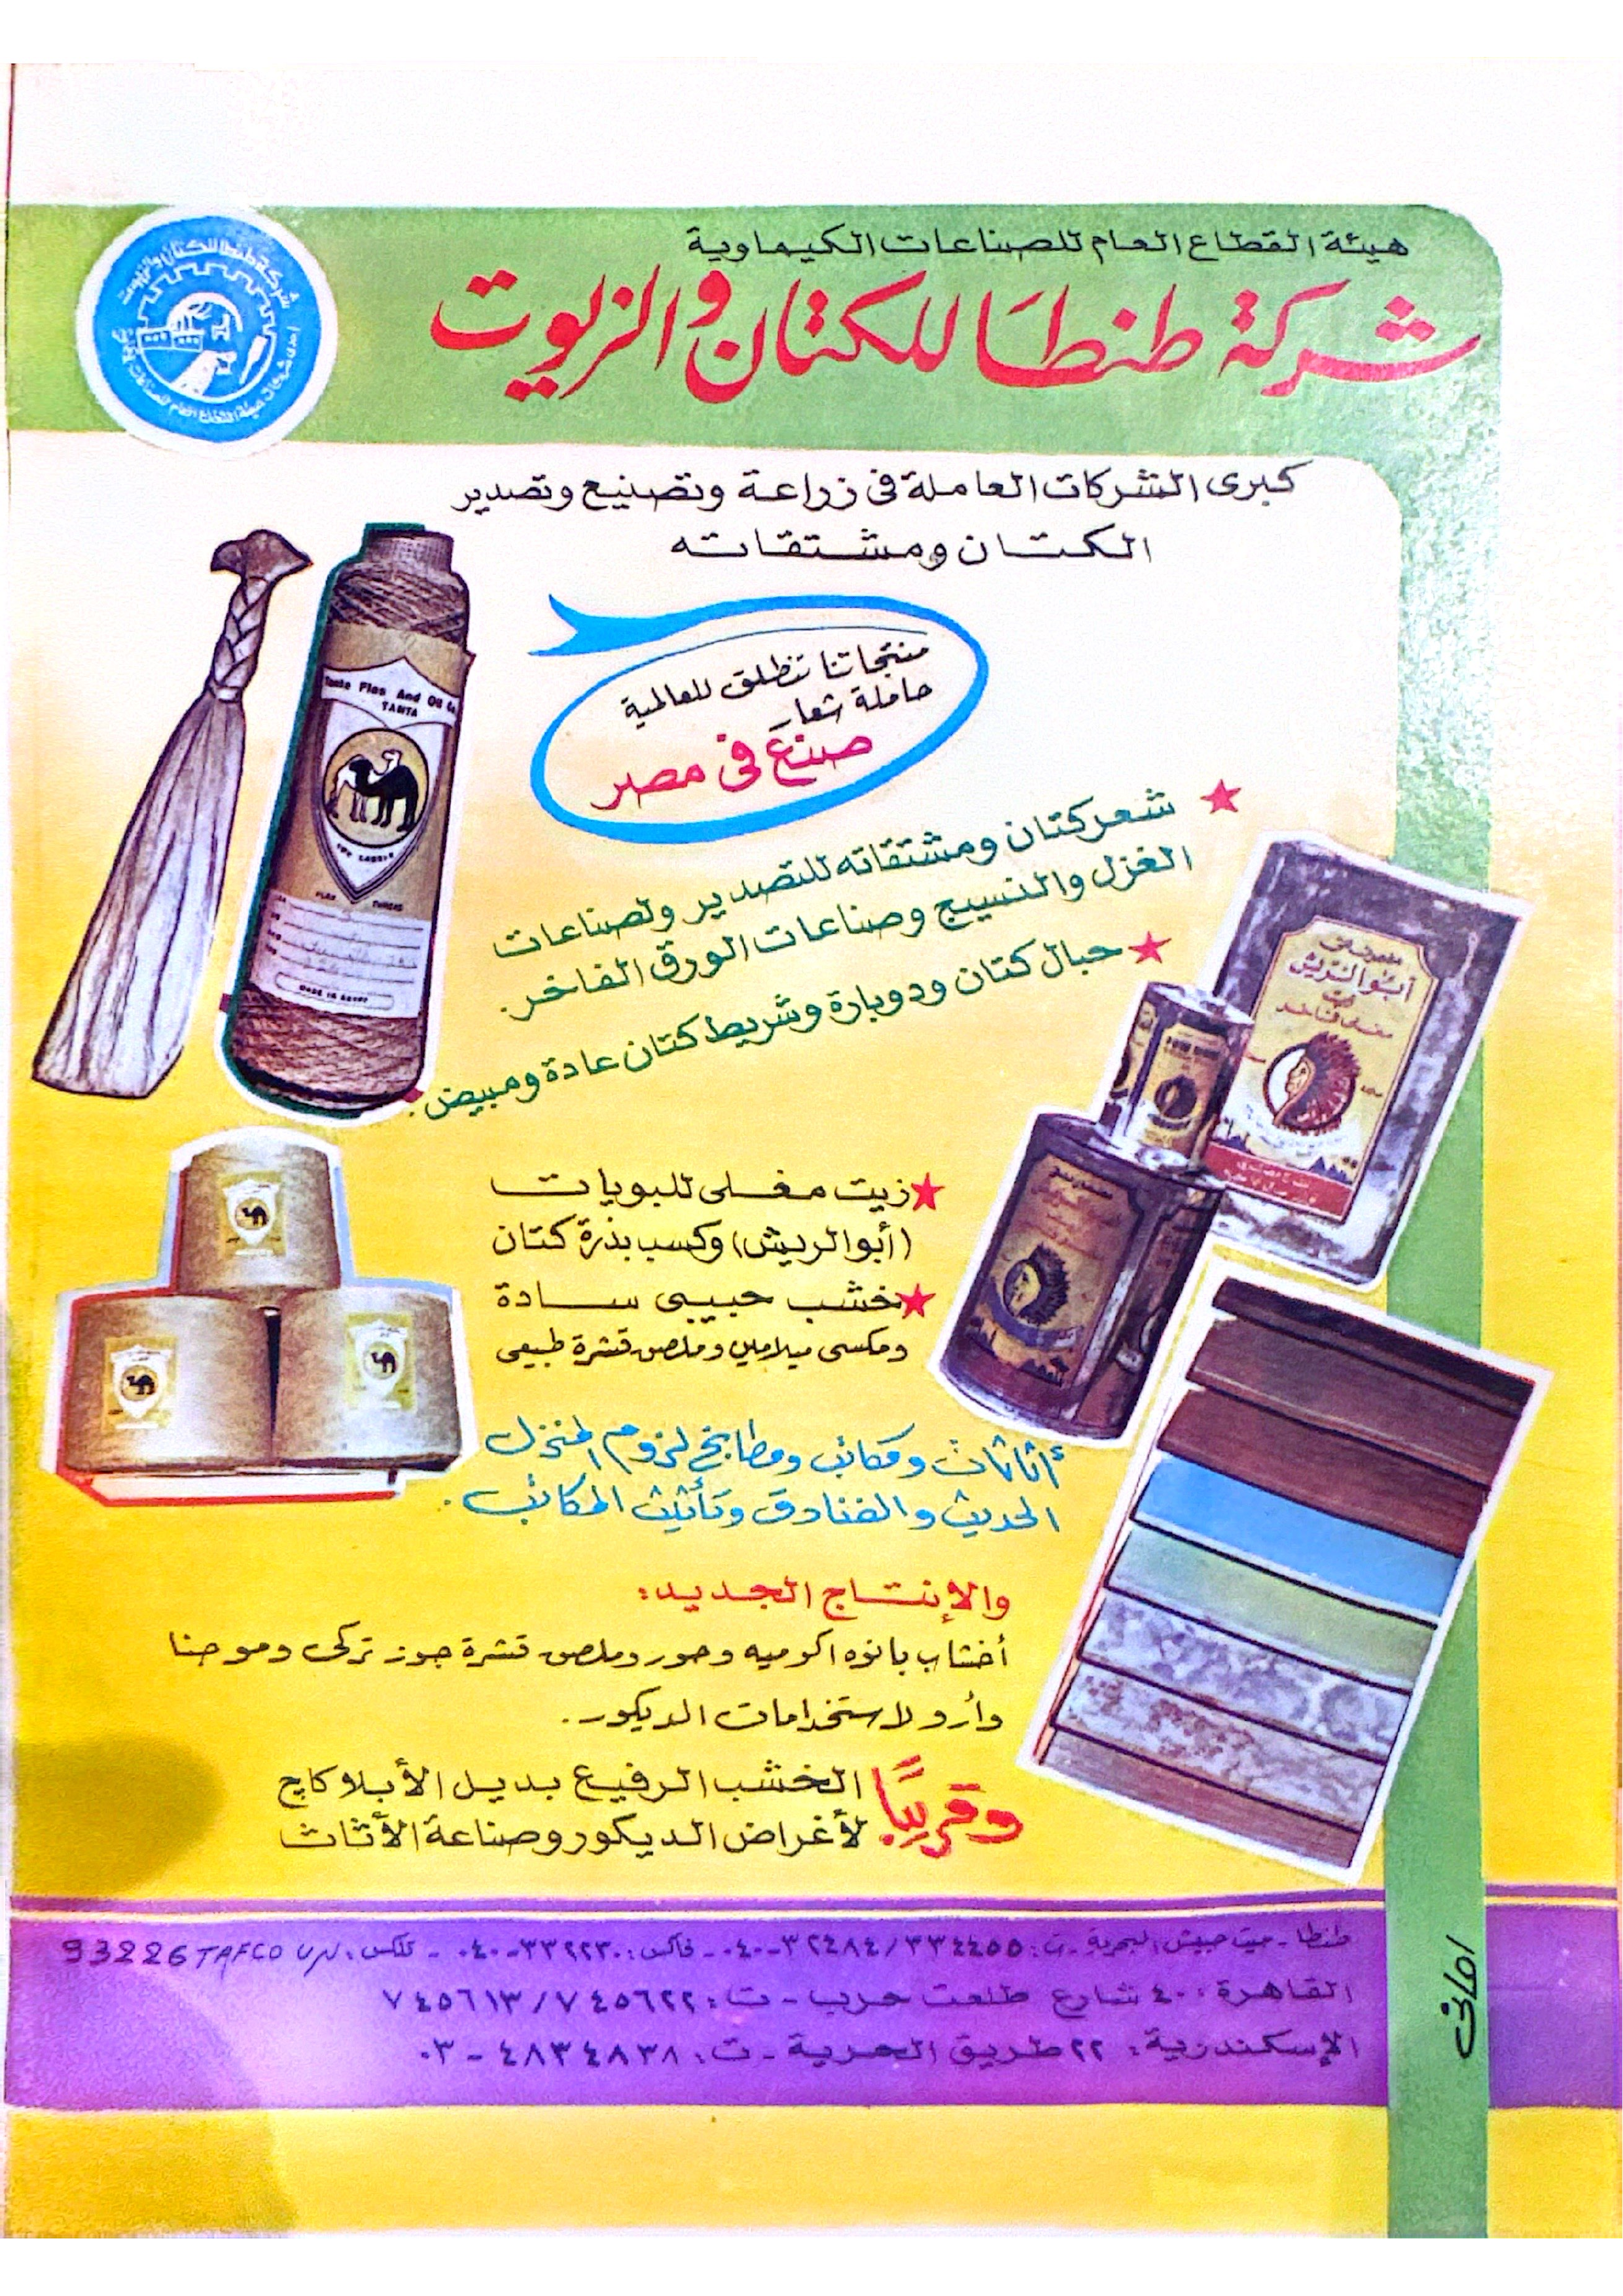 هيئة القطاع العام للصناعات الكيماوية
شركة طنطا للكتان والزيوت
شركة طنطا للكتان والزيوت
كبرى الشركات العاملة فى زراعة وتصنيع وتصدير
الكتان ومشتقاته
منتجاتنا تنطلق للعالمية
حاملة شعار
صنع فى مصر
Tanta Flax And Oil Co.
TANTA
FLAX
MADE IN EGYPT
★ شعر كتان ومشتقاته للتصدير ولصناعات
الغزل والنسيج وصناعات الورق الفاخر.
★ حبال كتان ودوبارة وشريط كتان عادة ومبيض.
أبو الريش
زيت
مغلى فاخر
★ زيت مغلى للبويات
(أبو الريش) وكسب بذرة كتان
★ خشب حبيبى سادة
ومكسى ميلامين وملصق قشرة طبيعى
أثاثات ومكاتب ومطابخ لزوم المنزل
الحديث والفنادق وتأثيث المكاتب.
والإنتاج الجديد:
أخشاب بانوه اكوميه وحور وملصق قشرة جوز تركى وموجنا
وأرو لاستخدامات الديكور.
وقريبًا الخشب الرفيع بديل الأبلاكاج
لأغراض الديكور وصناعة الأثاث
طنطا - ميت حبيش البحرية - ت: ٣٣٤٤٥٥/٣٢٤٨٤-٠٤٠ - فاكس: - تلكس: 93226 TAFCO UN
القاهرة: ٤٠ شارع طلعت حرب - ت: ٧٤٥٦٢٢/٧٤٥٦١٣
الإسكندرية: ٢٢ طريق الحرية - ت: ٤٨٣٤٨٣٨ - ٠٣
امانى